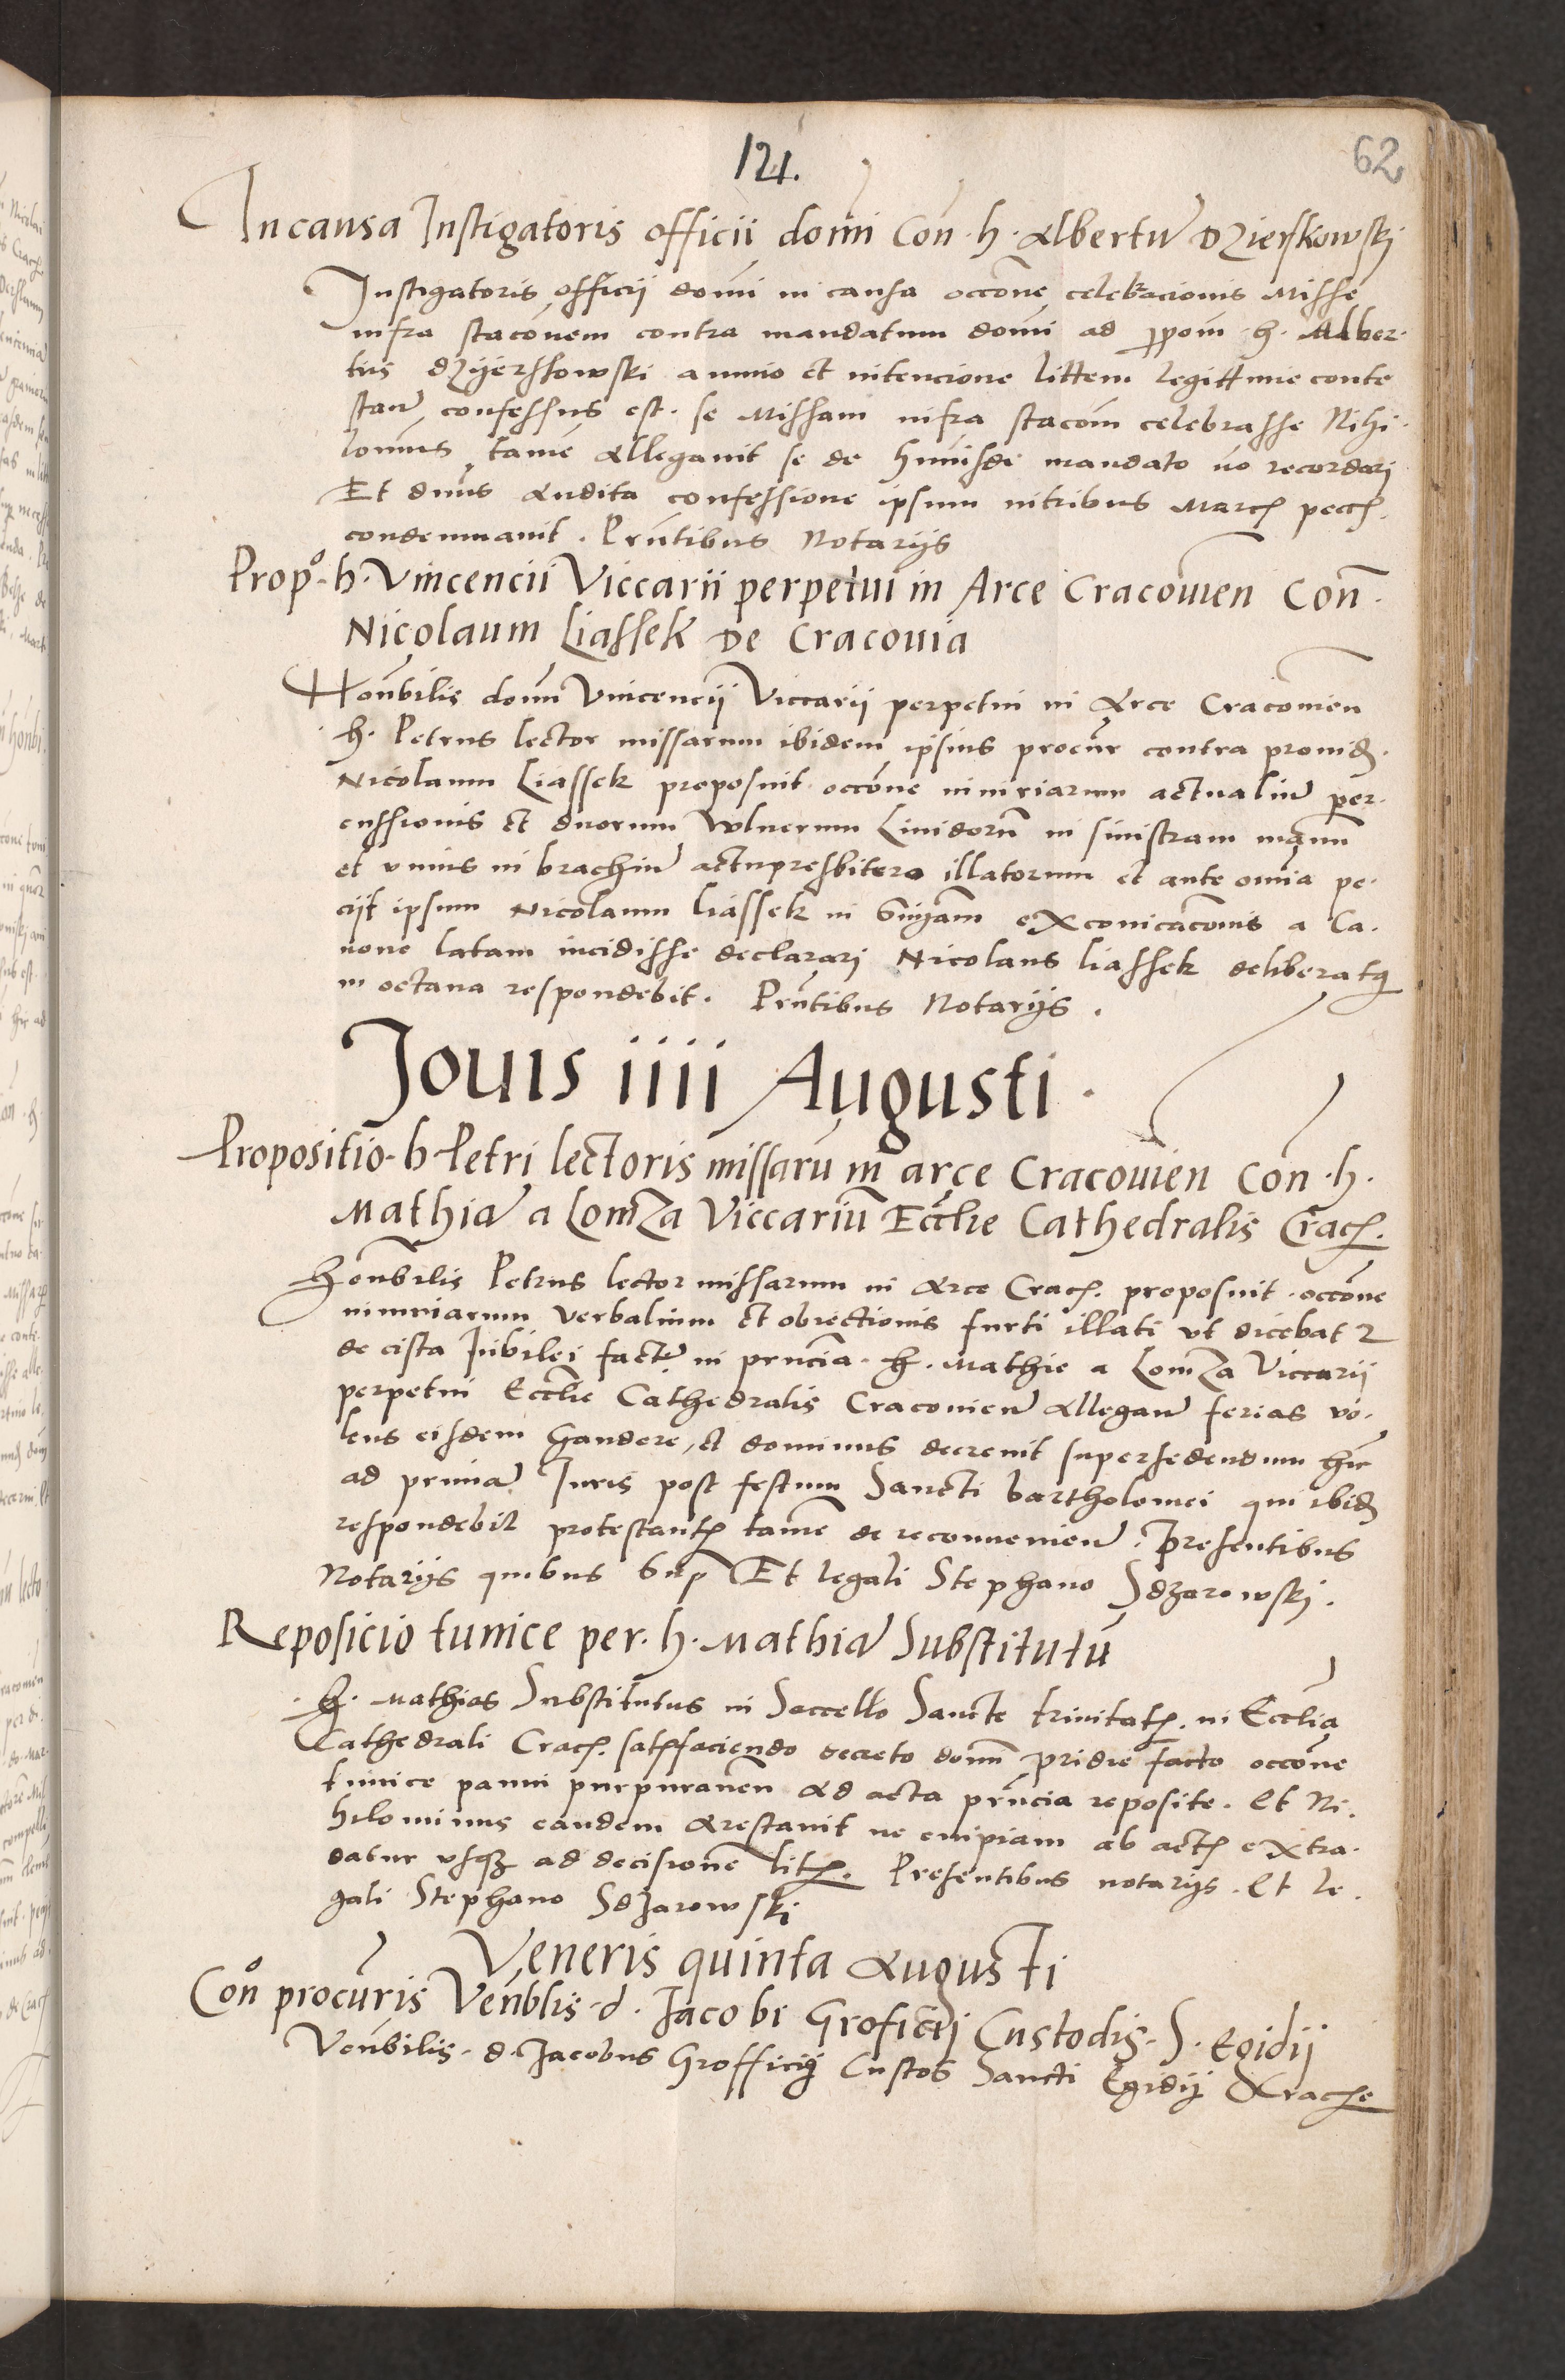 121.
62
In causa Instigatoris officii domi Con. h. Albertu Dzierskowski
Instigatoris officii domi in causa occone celebracionis Misse
infra staconem contra mandatum domi ad ppom h. Alber-
tus dzyerskowski animo et intencione littem legittime conte
stan confessus est. se Missam infra stacom celebrasse Nihi-
lomius tame Allegavit se de huiusde mandato no recordari
Et dnus Audita confessione ipsum in tribus Marc pecc.
condemnavit. Prntibus Notariis
Propo. h. Vincencii Viccarii perpetui in Arce Cracovien Con.
Nicolaum Liassek de Cracovia
Honbilis domi Vincencii Viccarii perpetui in Arce Cracovien
h. Petrus lector missarum ibidem ipsius procur contra provid.
Nicolaum Liassek proposuit occone iniuriarum actualiu per-
cussionis et duorum wlnerum Lividoru in sinistram manu
et unius in brachiu actupresbitero illatorum et ante omia pe-
ciit ipsum Nicolaum Liassek in snyam excoicaconis a Ca-
none latam incidisse declarari Nicolaus liassek deliberatq
in octava respondebit. Prntibus Notariis.
Jovis iiii Augusti.
Propositio. h. Petri lectoris missaru in arce Cracovien Con. h.
Mathia a Lomza Viccariu Ecclie Cathedralis Crac.
Honbilis Petrus lector missarum in Arce Crac. proposuit. occone
iniuriarum verbalium et obiectionis furti illati ut dicebat
de cista Iubilei facte in prncia. h. Mathie a Lomza Viccarii
perpetui Ecclie Cathedralis Cracovien Allegan ferias vo-
lens eisdem Gaudere, et dominus decrevit supersedendum hic
ad prima Iuris post festum Sancti bartholomei qui ibid
respondebit protestant tame de reconvenien. Presentibus
Notariis quibus sup Et legali Stephano Sdzarowski.
Reposicio tunice per. h. Mathia Substitutu
h. Mathias Substitutus in Saccello Sancte trinitat. in Ecclia
Cathedrali Crac. satisfaciendo decreto domi pridie facto occone
tunice panni purpuranen Ad acta prncia reposite. Et Ni-
hilominus eandem Arestavit ne cuipiam ab act extra-
datur usqz ad decisione lit. Presentibus notariis. Et le-
gali Stephano Sdzarowski
Veneris quinta Augusti
Cono procuris Venblis. d. Jacobi Groficii Custodis. S. Egidii
Venbilis. d. Jacobus Grofficii Custos Sancti Egidii